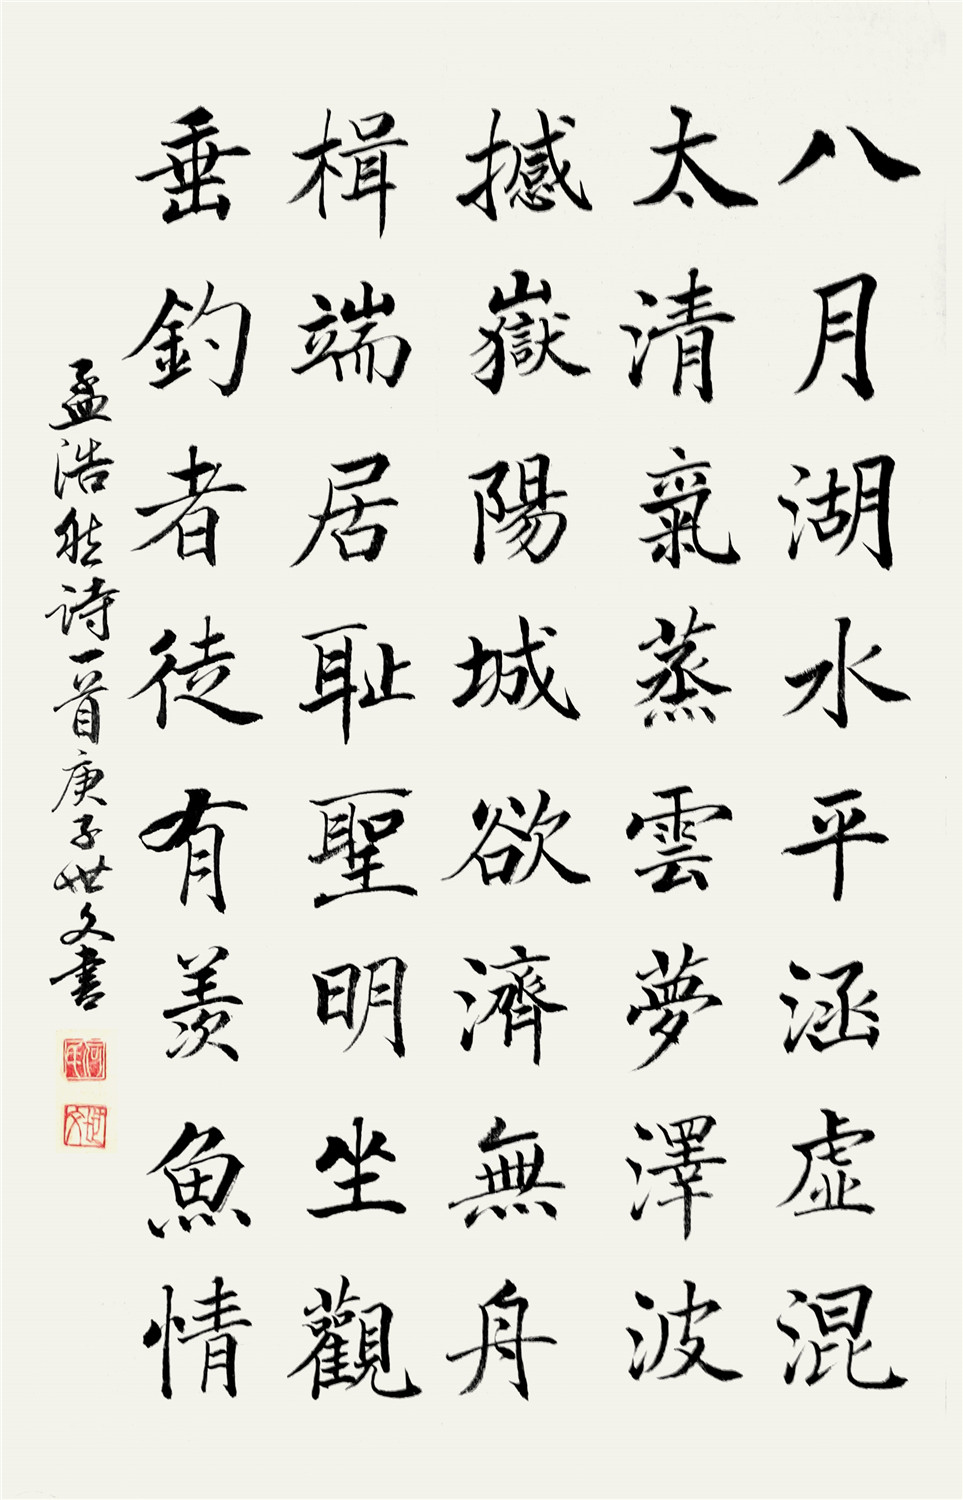 八月湖水平涵虚混
太清氣蒸雲夢澤波
撼嶽陽城欲濟無舟
楫端居耻聖明坐觀
垂釣者徒有羨魚情
孟浩然诗一首庚子世文書
世文